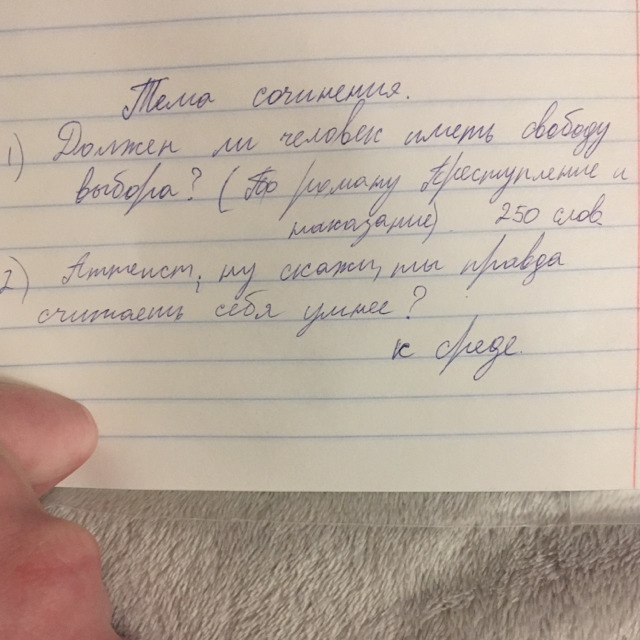 Тема сочинения.
1) Должен ли человек иметь свободу
выбора? (По роману Преступление и
наказание). 250 слов.
2) Аттеист, ну скажи, ты правда
считаешь себя умнее?
к среде.